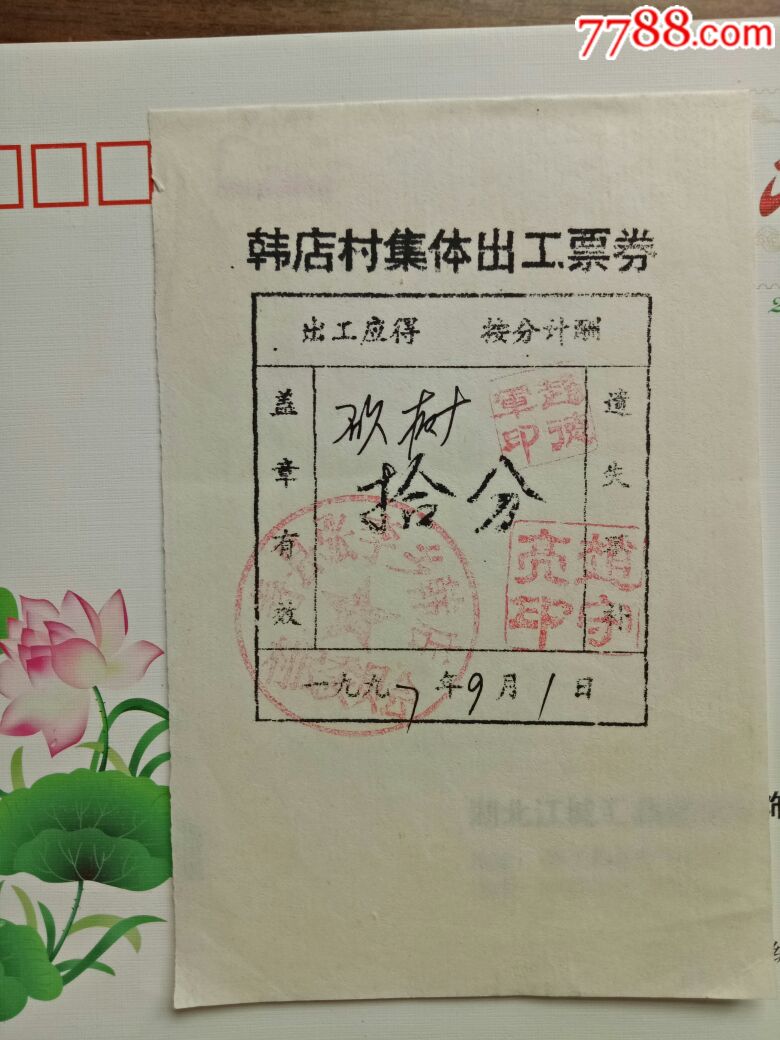 7788.com
韩店村集体出工票券
出工应得 按分计酬
盖章有效
树
拾分
遗失不补
一九九七年9月1日